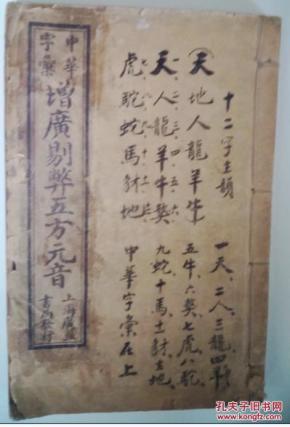 十二字主韻
一天、二人、三龍、四羊
天地人龍羊牛
五牛、六獒、七虎、八駝
天人龍羊牛獒
一、二、三、四、五、六
虎駝蛇馬豺地
中華字彙在上
中華
字彙
增廣剔弊五方元音
上海廣益
書局發行
孔夫子旧书网